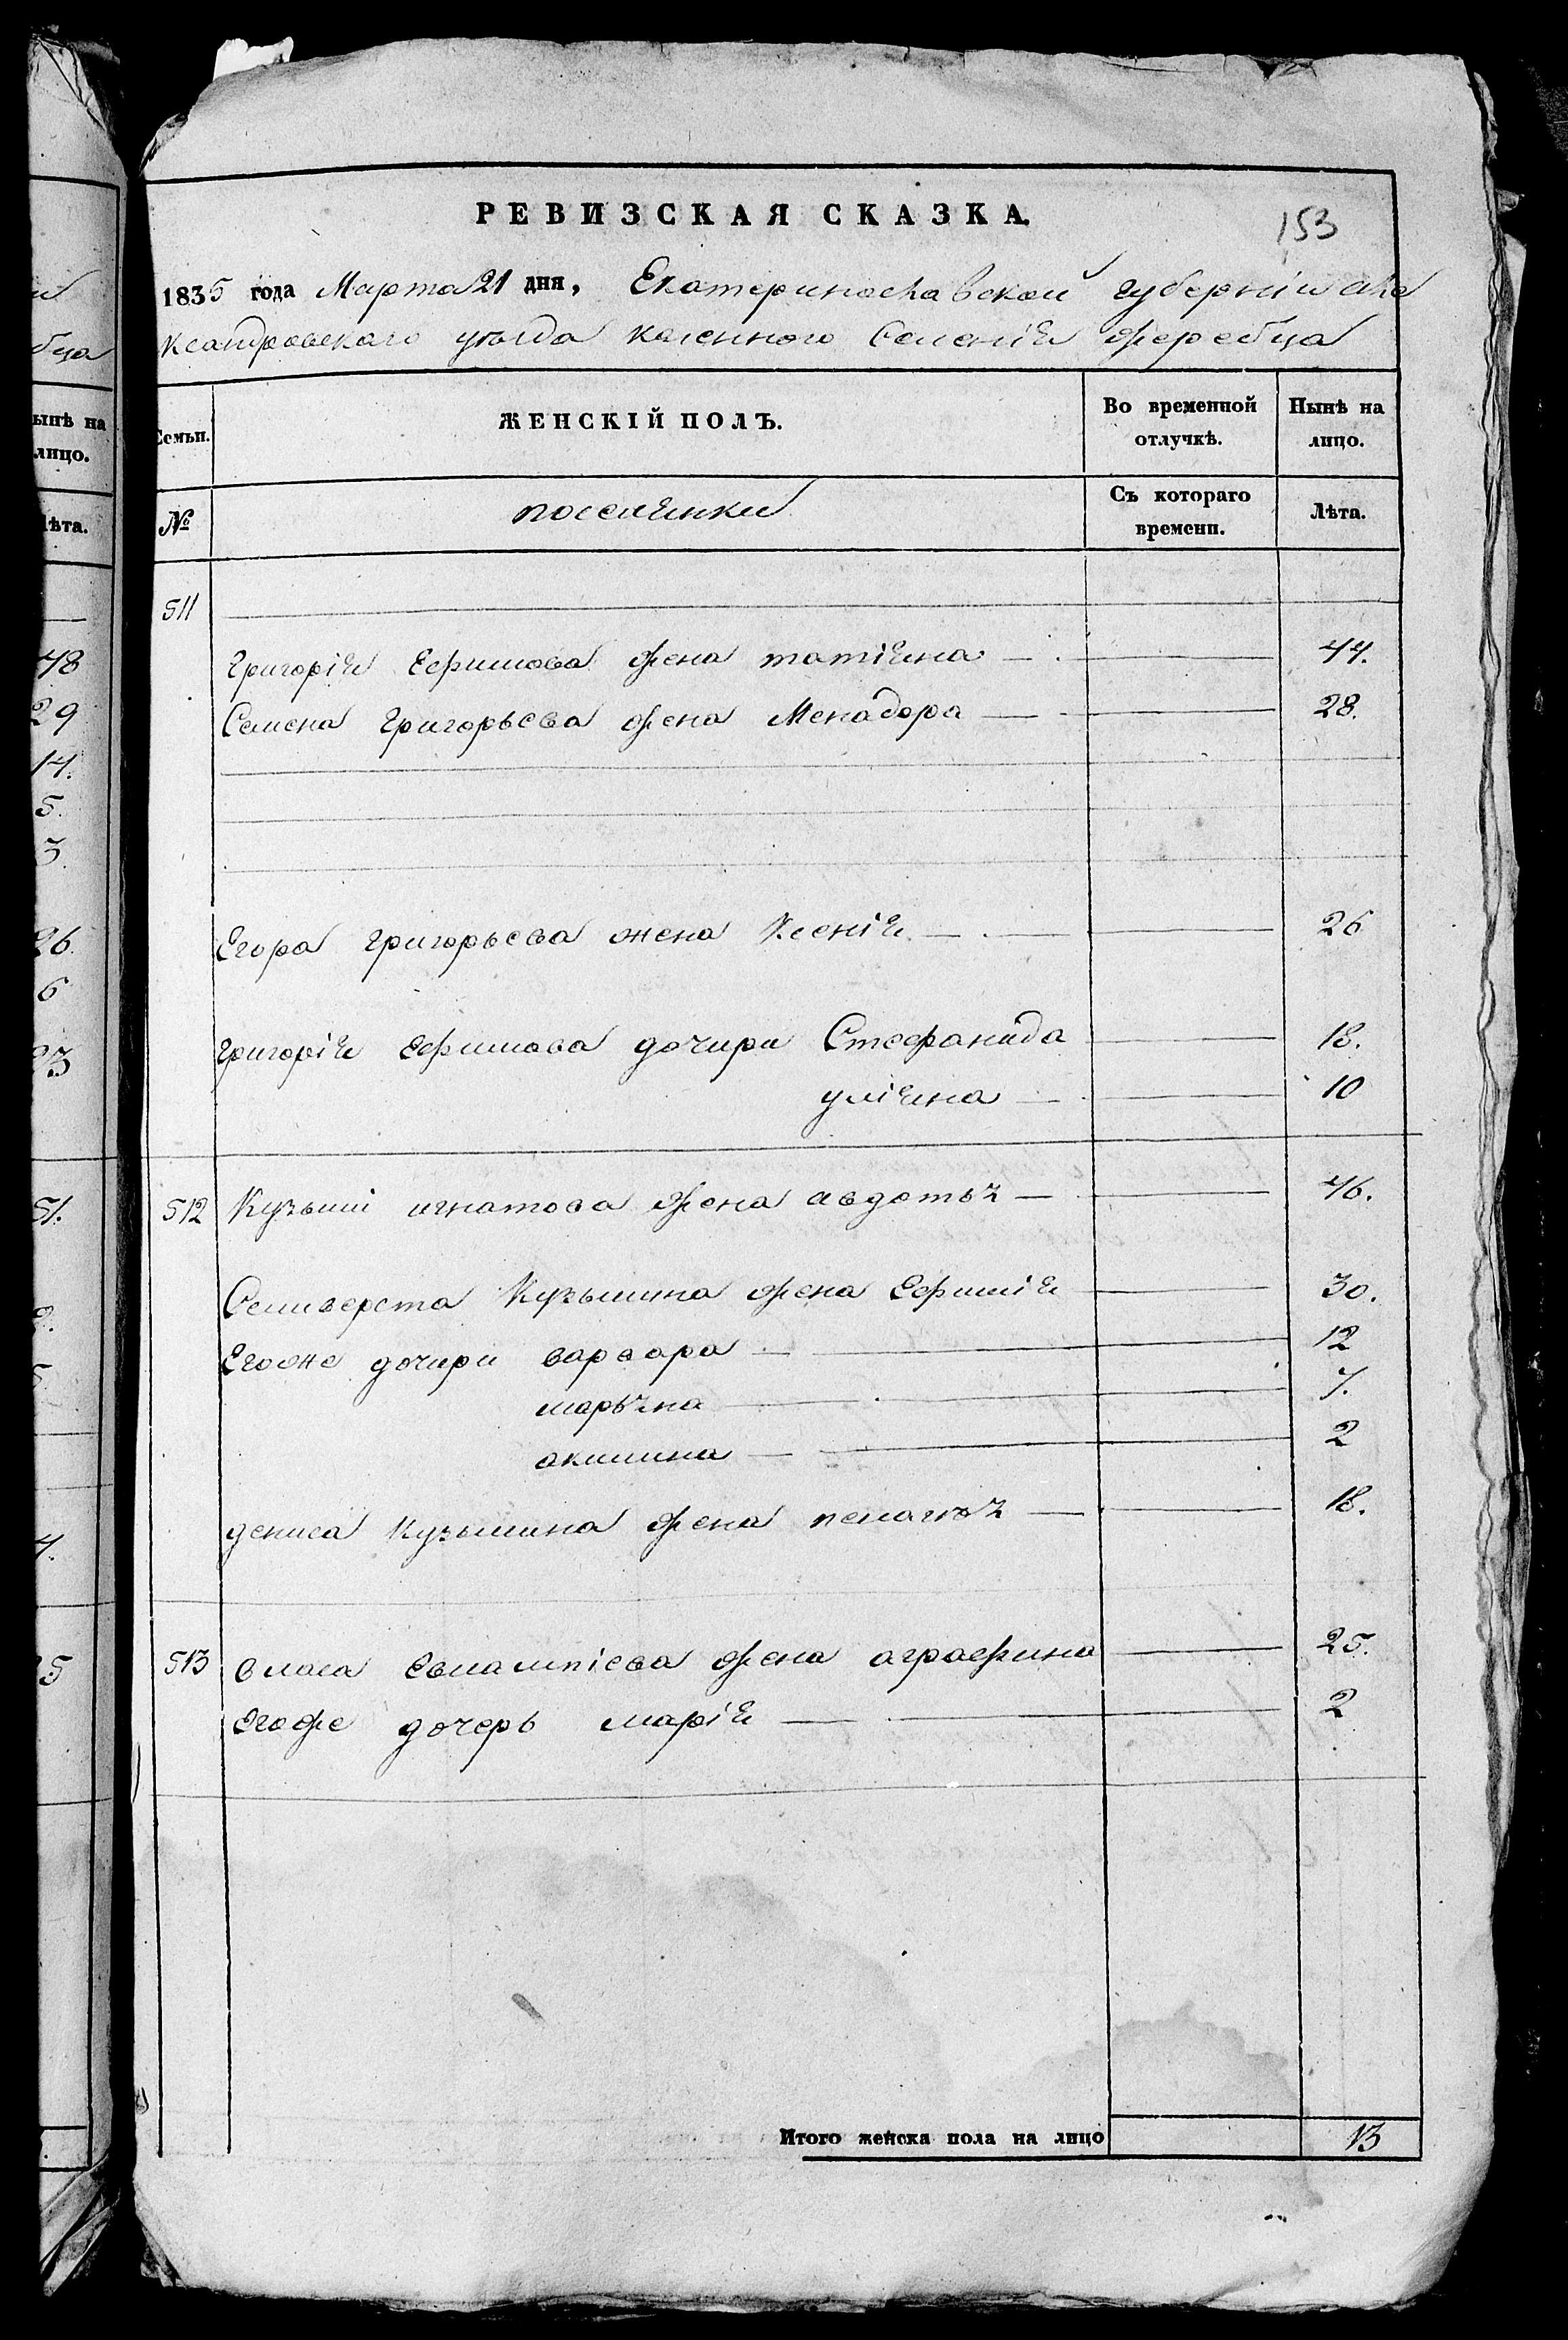 РЕВИЗСКАЯ СКАЗКА.
153
1835 года Марта 21 дня, Екатеринославской губерніи Але
ксандровскаго уѣзда казенного Селенія жеребца
Семьи.
ЖЕНСКІЙ ПОЛЪ.
Во временной отлучкѣ.
Нынѣ на лицо.
№
поселянки
Съ котораго времени.
Лѣта.
511
Григорія Ефимова жена татіяна 44.
Семена Григорьева жена Минадора 28.
Егора Григорьева жена Ксенія 26
Григорія Ефимова дочири Стефанида 18.
уліяна 10
512 Кузьмы игнатова жена авдотья 46.
Селиверста Кузьмина жена Ефимія 30.
Егоже дочири варвара 12
марьяна 7.
акилина 2
дениса Кузьмина жена пелагея 18.
513 власа Евлампіева жена аграфина 25.
Егоже дочерь марія 2
Итого женска пола на лицо 13
ынѣ на
лицо.
лѣта.
48
29
14.
5.
3.
26.
6
23
51.